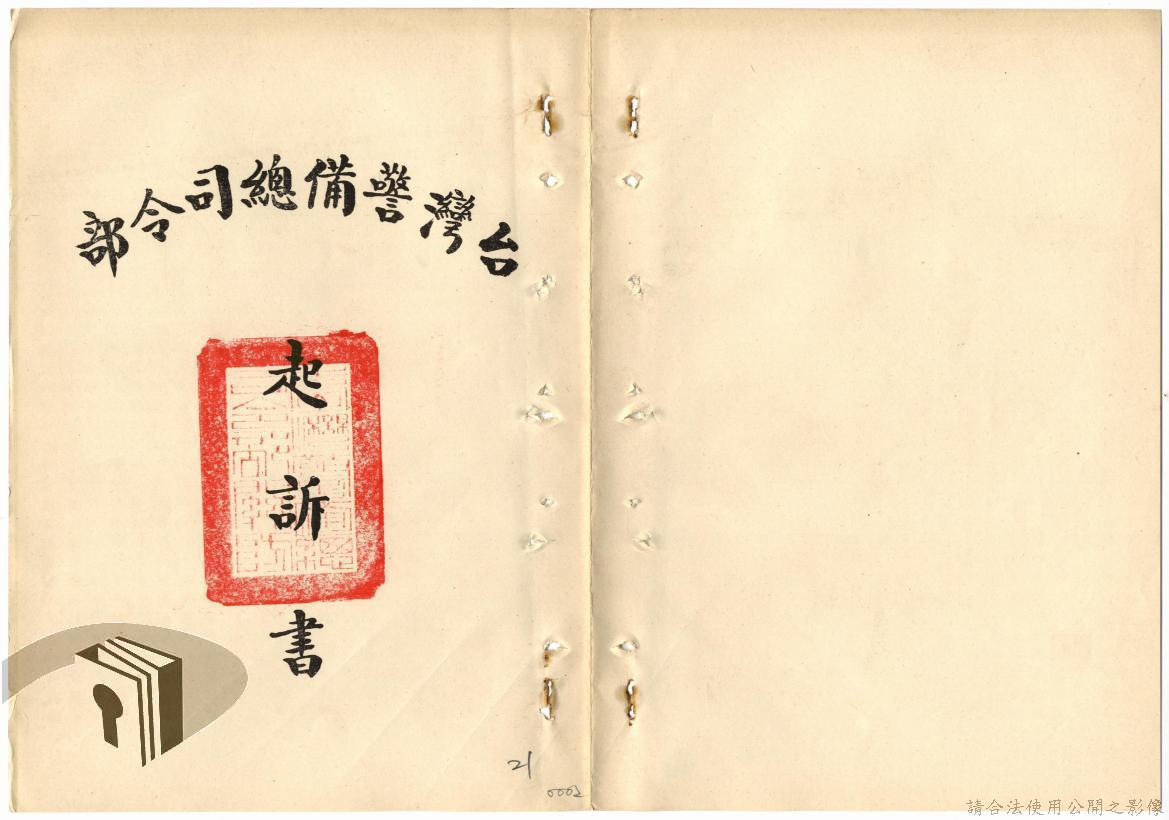 台灣警備總司令部
起訴書
21
0002
請合法使用公開之影像